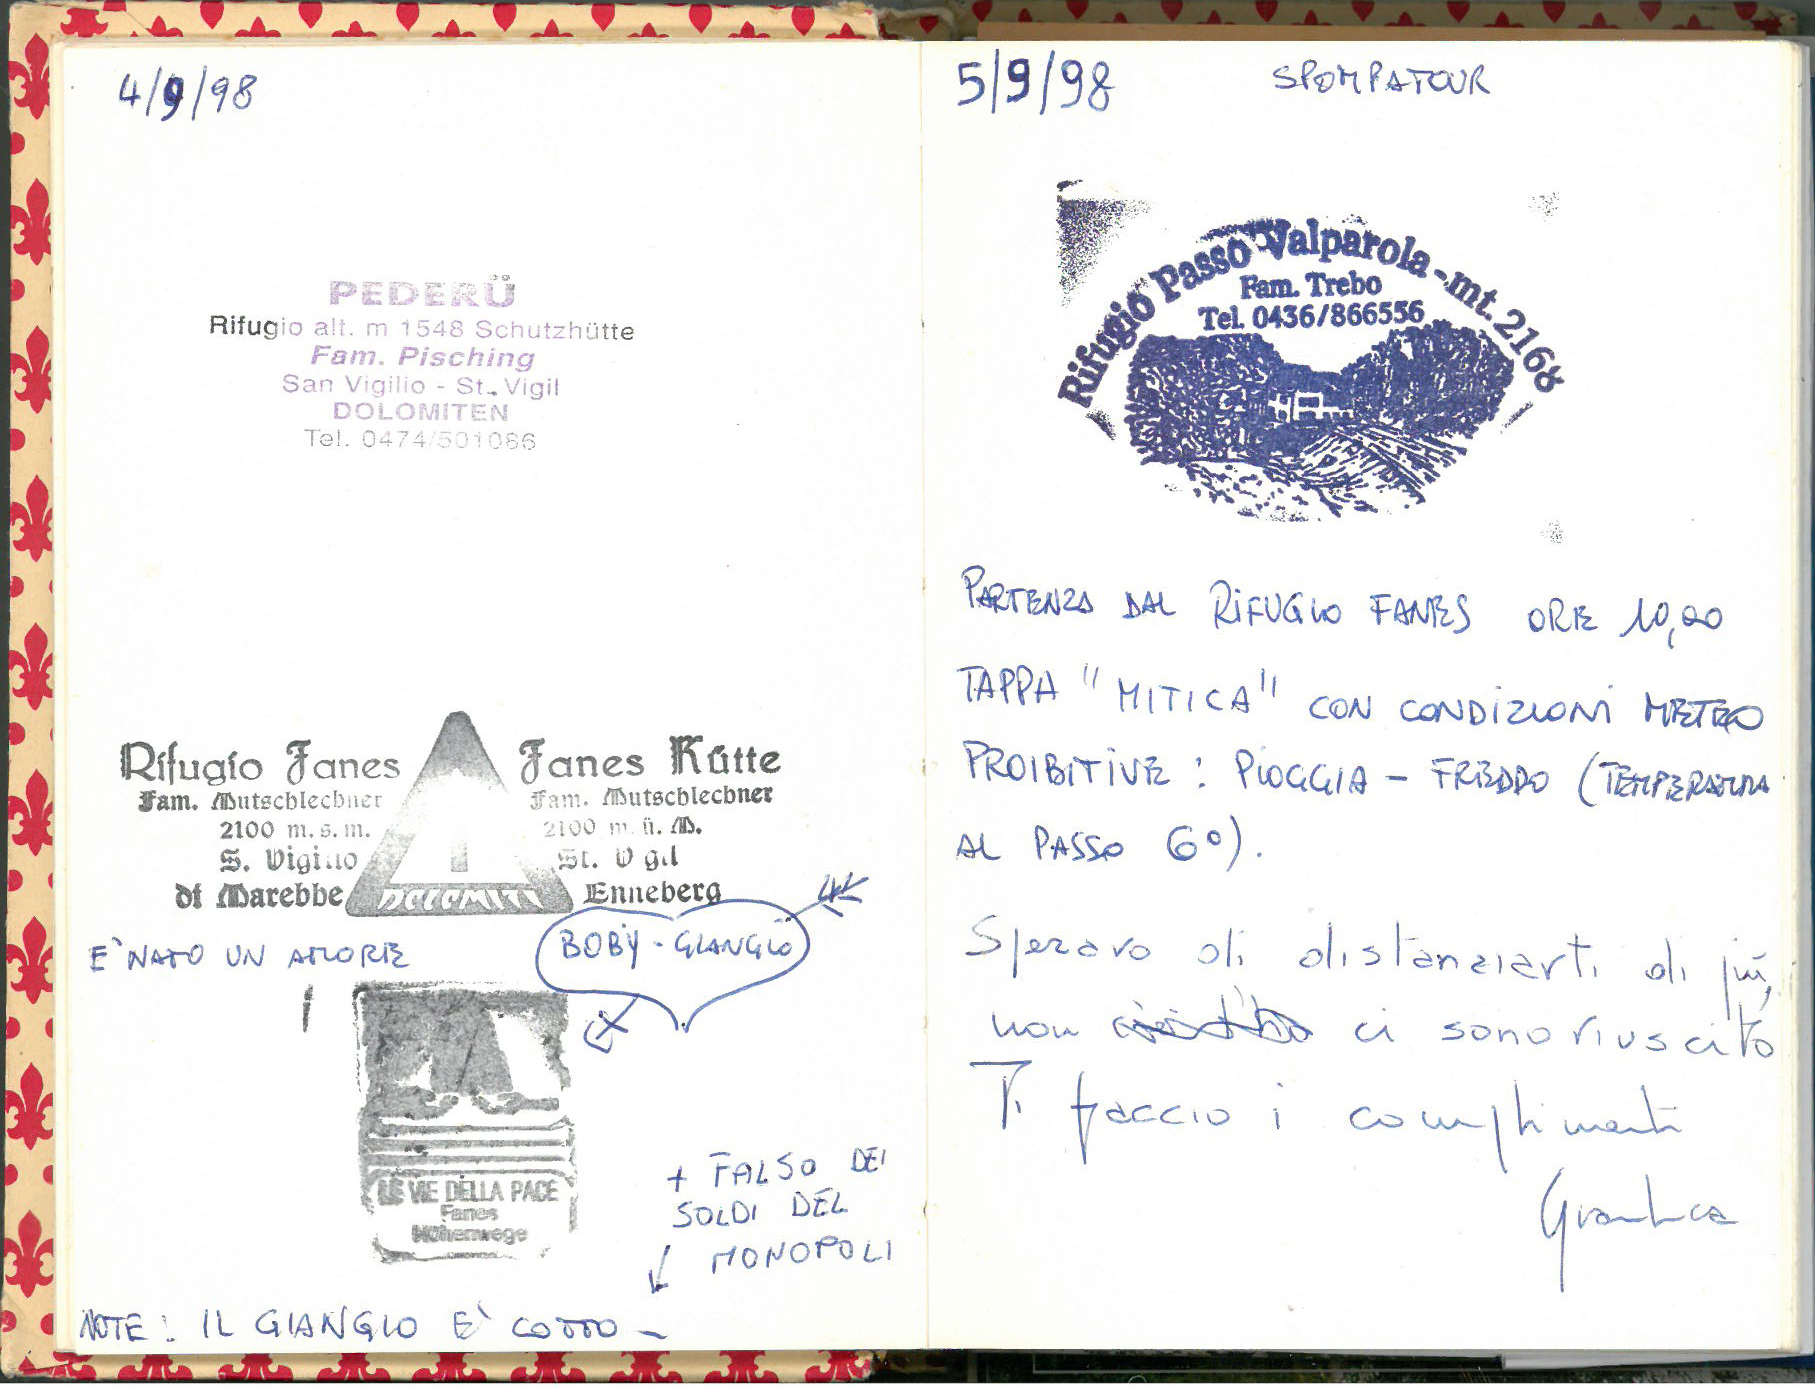 4/9/98
PEDERÜ
Rifugio alt. m 1548 Schutzhütte
Fam. Pisching
San Vigilio - St. Vigil
DOLOMITEN
Tel. 0474/501086
Rifugio Fanes
Fam. Mutschlechner
2100 m. s. m.
S. Vigilio
di Marebbe
DOLOMITI
Fanes Hütte
Fam. Mutschlechner
2100 m. ü. M.
St. Vigil
Enneberg
E' NATO UN AMORE
BOBY - GIANGIO
LE VIE DELLA PACE
Fanes
Höhenwege
+ FALSO DEI
SOLDI DEL
MONOPOLI
NOTE: IL GIANGIO E' COTTO -
5/9/98
SPOMPATOUR
Rifugio Passo Valparola - mt. 2168
Fam. Trebo
Tel. 0436/866556
PARTENZA DAL RIFUGIO FANES ORE 10,00
TAPPA "MITICA" CON CONDIZIONI METEO
PROIBITIVE: PIOGGIA - FREDDO (TEMPERATURA
AL PASSO 6°).
Speravo di distanziarti di più,
non ci sono riuscito
Ti faccio i complimenti
Gianluca